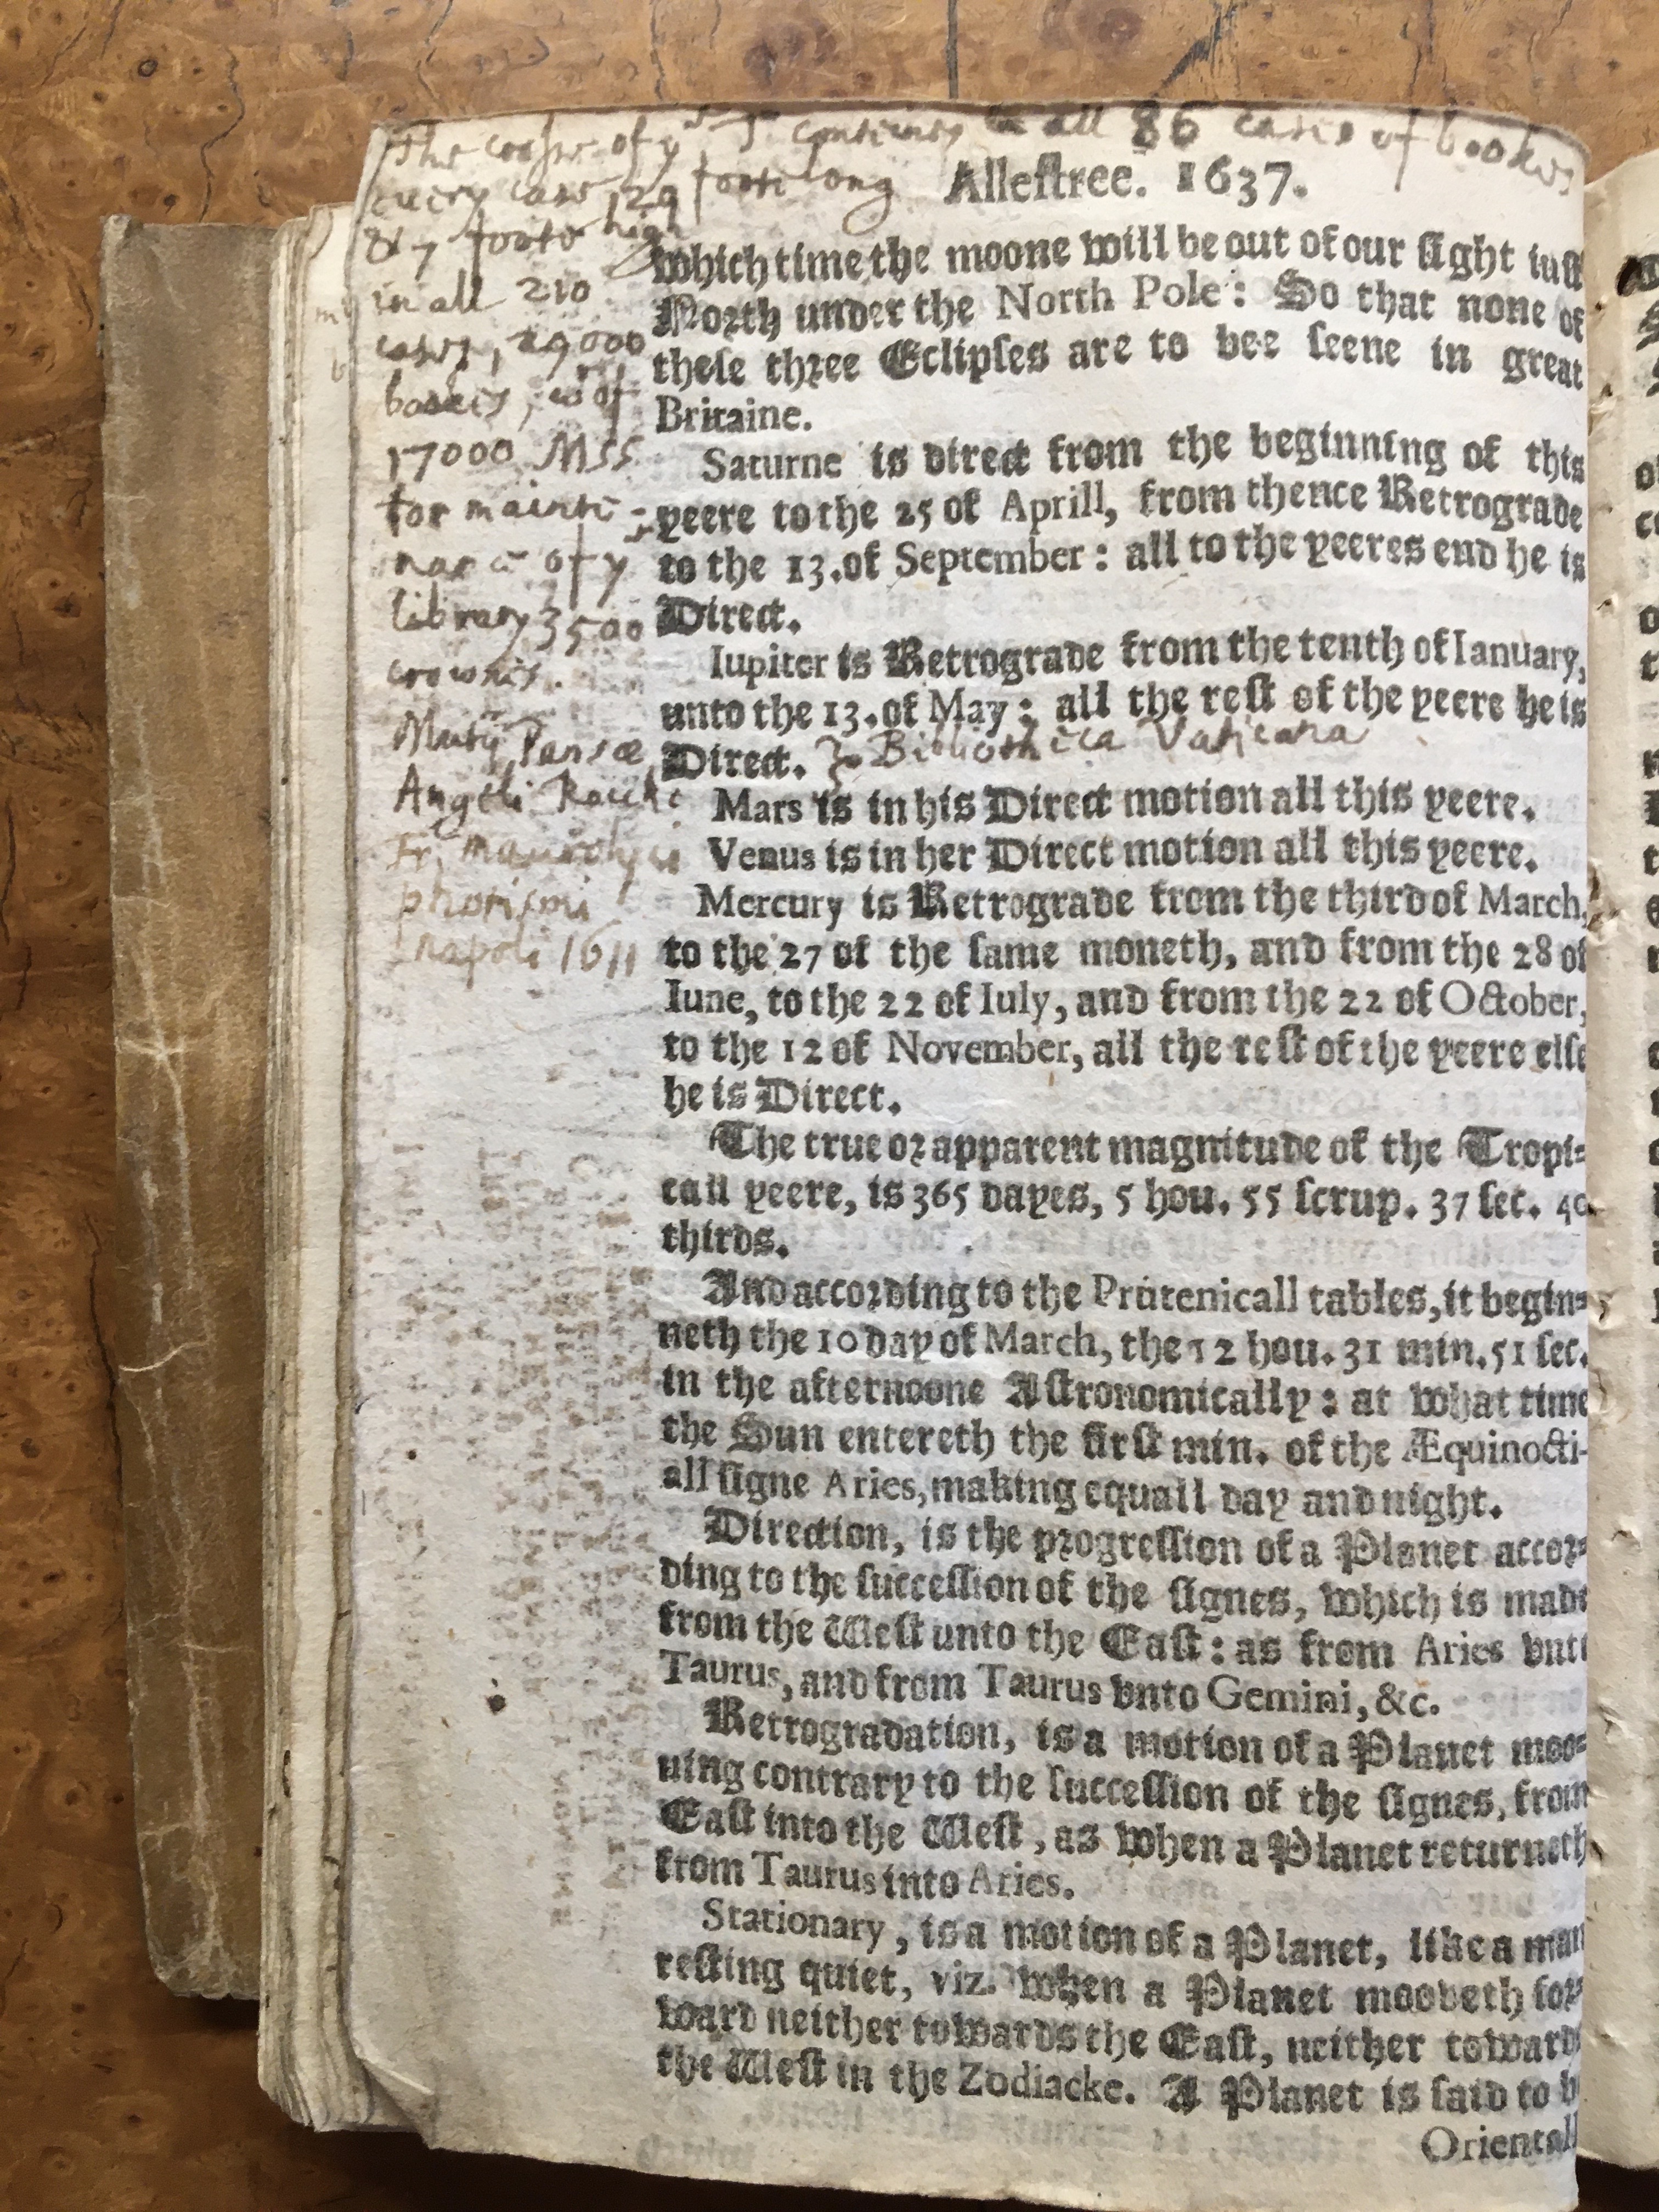 of y contineth in all 86 cases of bookes
every case 29 foote long
& 7 foote high
in all 210
cases, 29000
bookes, wof
17000 Mss
for mainte-
nance of y
library 3500
crownes.
Mutij Pansæ
Angeli
} Bibliotheca Vaticana
Fr,
phorismi
napoli 1611
Allestree. 1637.
which time the moone will be out of our ſight iuſt
North under the North Pole: So that none of
theſe three Eclipſes are to bee ſeene in great
Britaine.
Saturne is direct from the beginning of this
yeere to the 25 of Aprill, from thence Retrograde
to the 13. of September: all to the yeeres end he is
Direct.
Iupiter is Retrograde from the tenth of Ianuary,
unto the 13. of May: all the reſt of the yeere he is
Direct.
Mars is in his Direct motion all this yeere.
Venus is in her Direct motion all this yeere.
Mercury is Retrograde from the third of March,
to the 27 of the ſame moneth, and from the 28 of
Iune, to the 22 of Iuly, and from the 22 of October,
to the 12 of November, all the reſt of the yeere elſe
he is Direct.
The true or apparent magnitude of the Tropi-
call yeere, is 365 dayes, 5 hou. 55 ſcrup. 37 ſec. 40
thirds.
And according to the Prutenicall tables, it begin-
neth the 10 day of March, the 12 hou. 31 min. 51 ſec.
in the afternoone Aſtronomically: at what time
the Sun entereth the firſt min. of the Æquinocti-
all ſigne Aries, making equall day and night.
Direction, is the progreſſion of a Planet accor-
ding to the ſucceſſion of the ſignes, which is made
from the Weſt unto the Eaſt: as from Aries vnto
Taurus, and from Taurus vnto Gemini, &c.
Retrogradation, is a motion of a Planet moo-
uing contrary to the ſucceſſion of the ſignes, from
Eaſt into the Weſt, as when a Planet returneth
from Taurus into Aries.
Stationary, is a motion of a Planet, like a man
reſting quiet, viz. when a Planet mooveth for-
ward neither towards the Eaſt, neither toward
the Weſt in the Zodiacke. A Planet is ſaid to b
Orientall